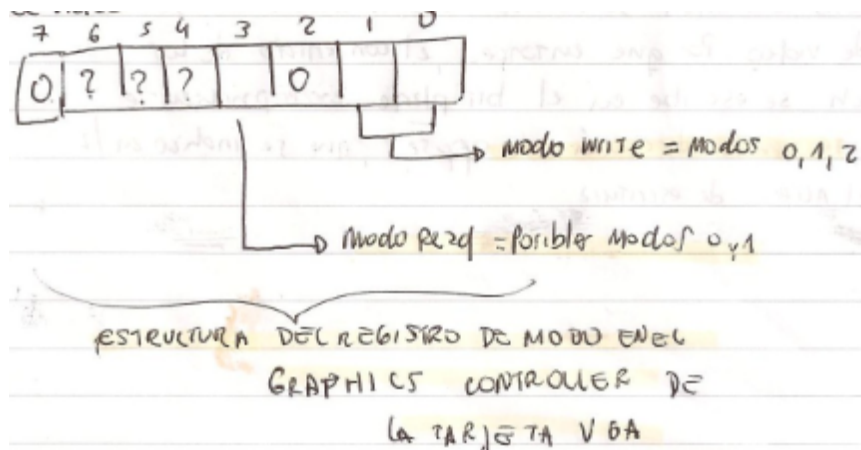 7 6 5 4 3 2 1 0
0 ? ? ? 0
modo write = modos 0,1,2
modo Read = Posibles modos 0,1
ESTRUCTURA DEL REGISTRO DE MODO EN EL
GRAPHICS CONTROLLER DE
LA TARJETA VGA